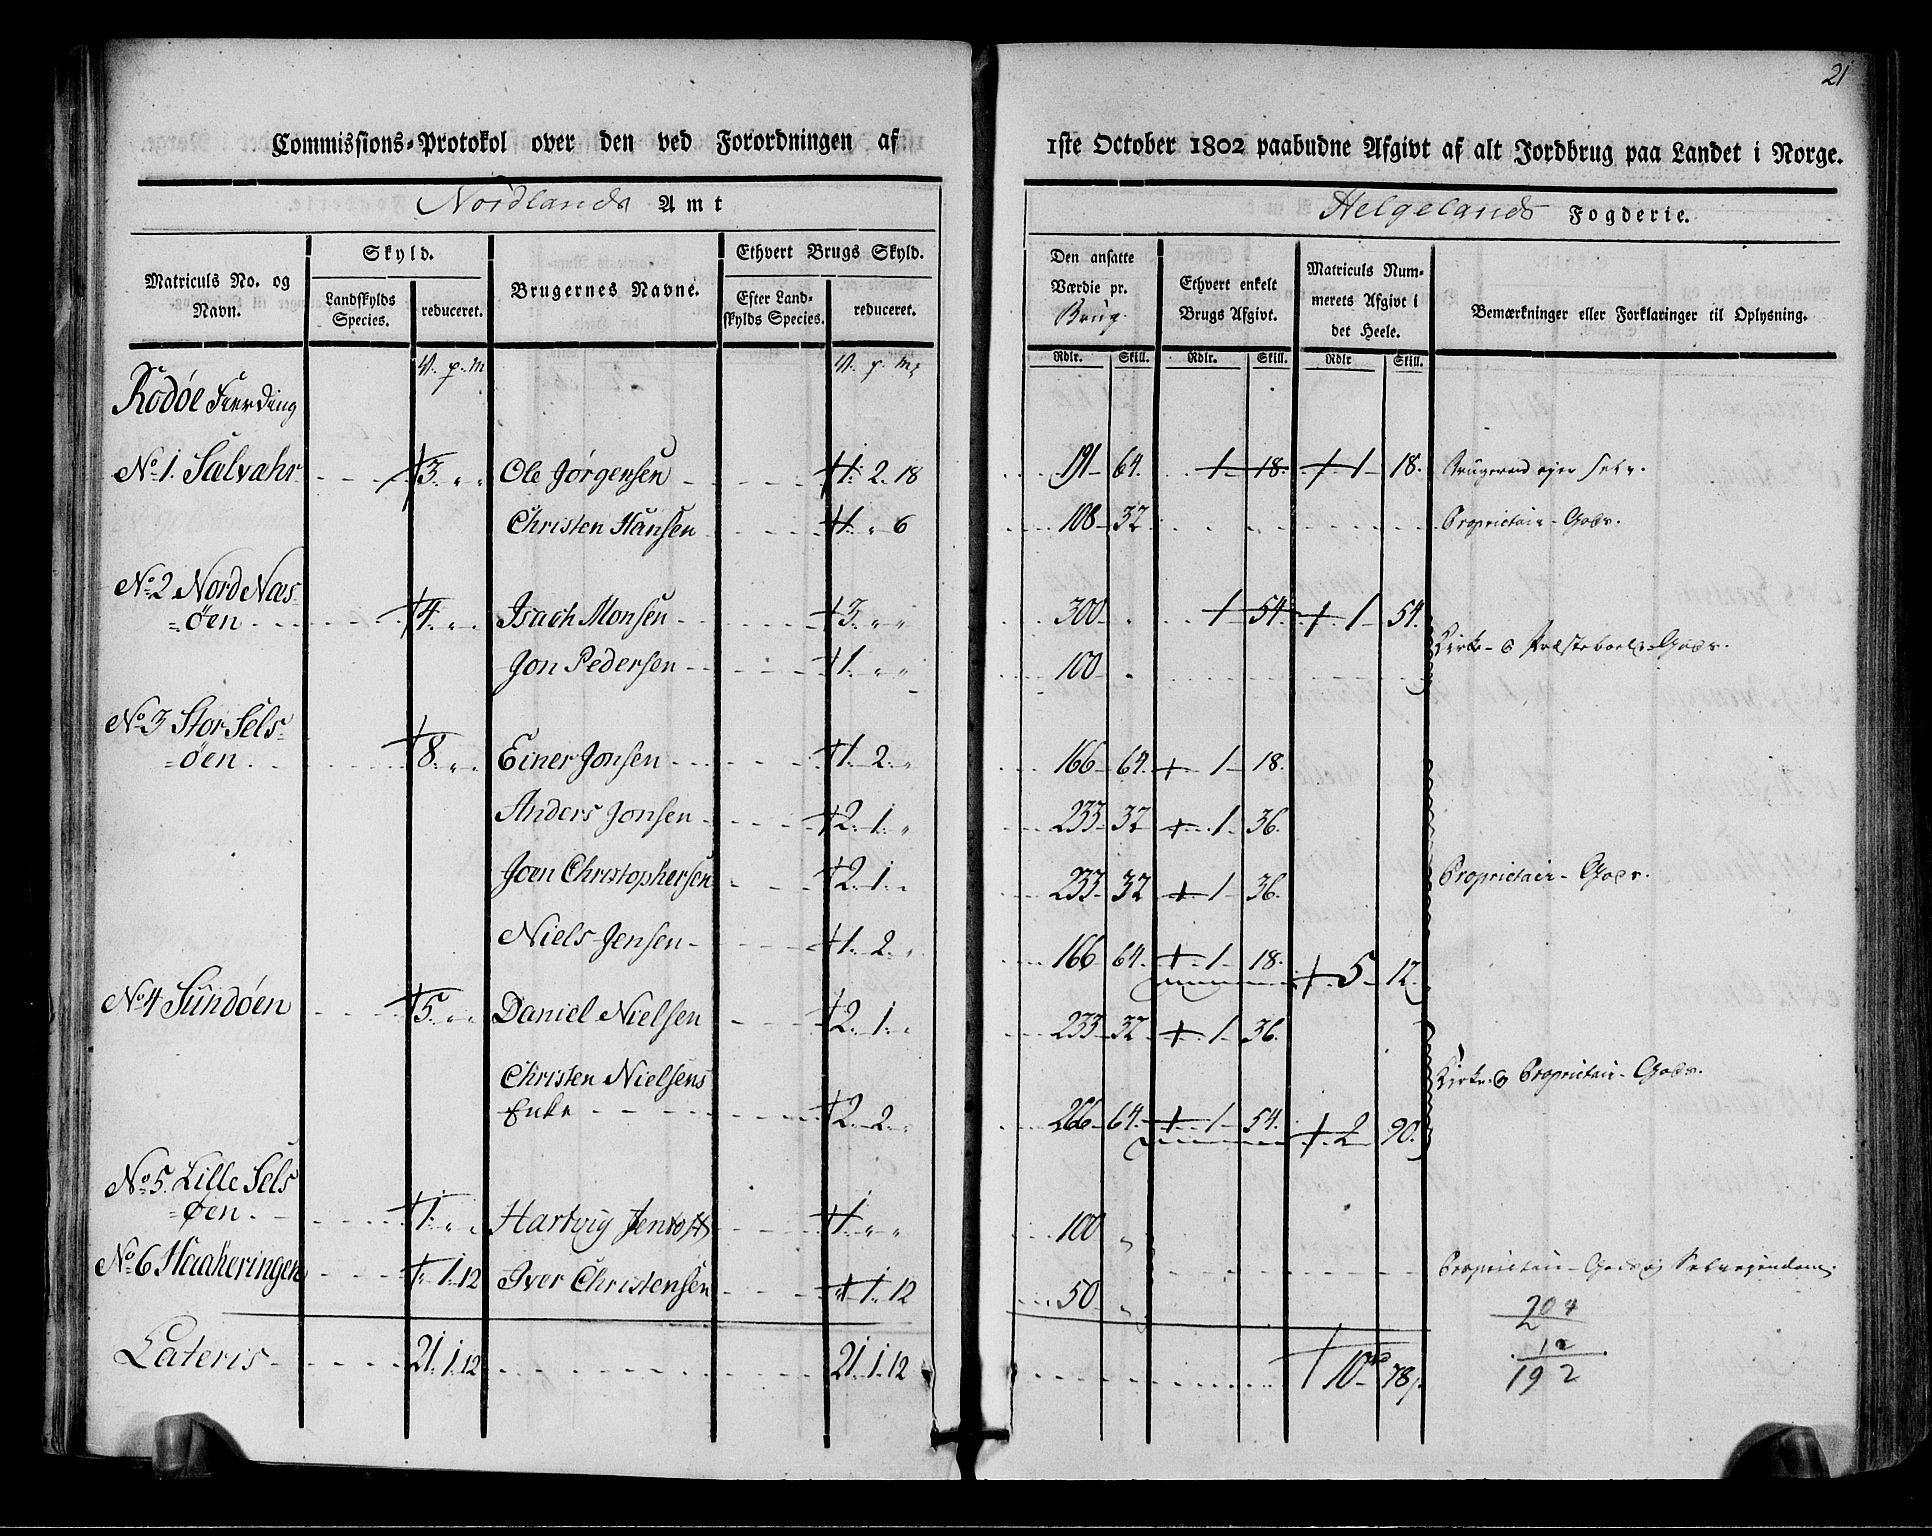 21
Commissions-Protokol over den ved Forordningen af 1ste October 1802 paabudne Afgivt af alt Jordbrug paa Landet i Norge.
Nordlands Amt
Helgelands Fogderie.
Matriculs No. og Navn.
Skyld.
Landskylds Species.
reduceret.
Brugernes Navne.
Ethvert Brugs Skyld.
Efter Landskylds Species.
reduceret.
Den ansatte Værdie pr. Brug.
Ethvert enkelt Brugs Afgivt.
Matriculs Nummerets Afgivt i det Heele.
Bemærkninger eller Forklaringer til Oplysning.
Rdlr. Skill. Rdlr. Skill. Rdlr Skill.
V. p. M V. p. M
Rodöe Fierding
No 1. Sælvahr 3. " " Ole Jörgensen 1. 2. 18 191 64. 1 18. 1 18. Brugeren ejer selv.
Christen Hansen 1. " 6 108 32 Proprietair-Gods.
No 2 Nord Næs-
=öen 4. " " Isach Monsen 3. " " 300 " 1 54. 1 54.
Kirke- o Præsteboels-Gods.
Jon Pedersen 1. " " 100 "
No 3 Stor Sels-
=öen 8. " " Einer Jonsen 1. 2. " 166 64. 1 18.
Anders Jonsen 2. 1. " 233 32 1 36.
Joen Christophersen 2. 1. " 233 32 1 36. Proprietair-Gods.
Niels Jensen 1. 2. " 166 64. 1 18. 5 12.
No 4 Sundöen 5. " " Daniel Nielsen 2. 1. " 233 32 1 36.
Christen Nielsens
Enke 2. 2. " 266 64. 1 54. 2 90. Kirke o Proprietair-Gods.
No 5. Lille Sels
=öen 1. " " Hartvig Jentoft 1. " " 100 "
No 6 Haakeringen 1. 12 Iver Christensen " 1. 12 50 " Proprietair-Gods og Selveiendom.
204
12
192
Lateris 21. 1. 12 21. 1. 12 10 78